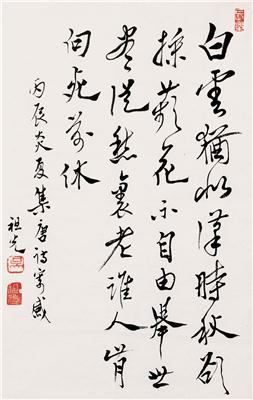 白雲猶似漢時秋欲
採蘋花不自由舉世
盡從愁裏老誰人肯
向死前休
丙辰炎夏集唐詩寄感
祖光